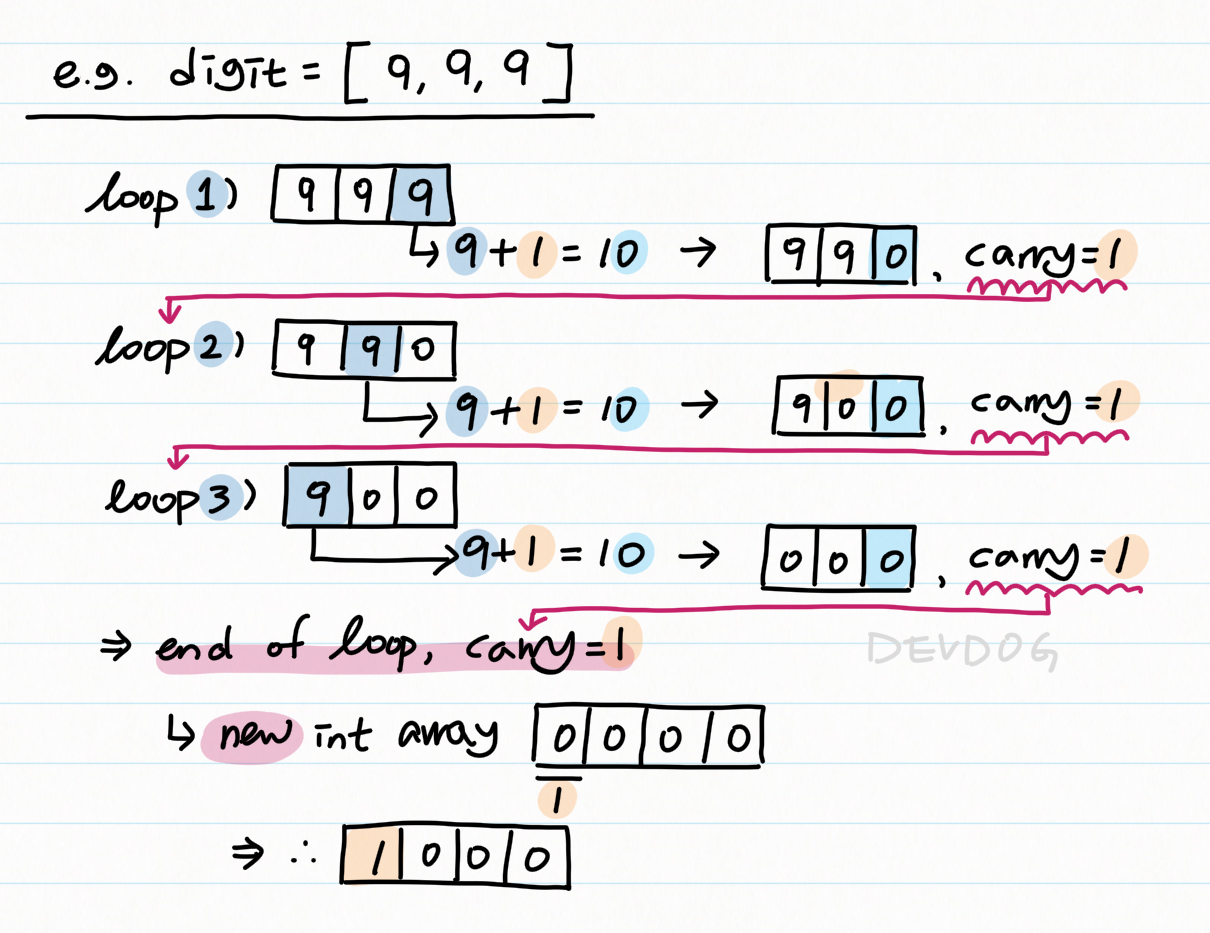 e.g. digit = [ 9, 9, 9 ]
loop 1) 9 9 9
9 + 1 = 10 → 9 9 0 , carry = 1
loop 2) 9 9 0
9 + 1 = 10 → 9 0 0 , carry = 1
loop 3) 9 0 0
9 + 1 = 10 → 0 0 0 , carry = 1
⇒ end of loop, carry = 1
DEVDOG
↳ new int array 0 0 0 0
1
⇒ ∴ 1 0 0 0